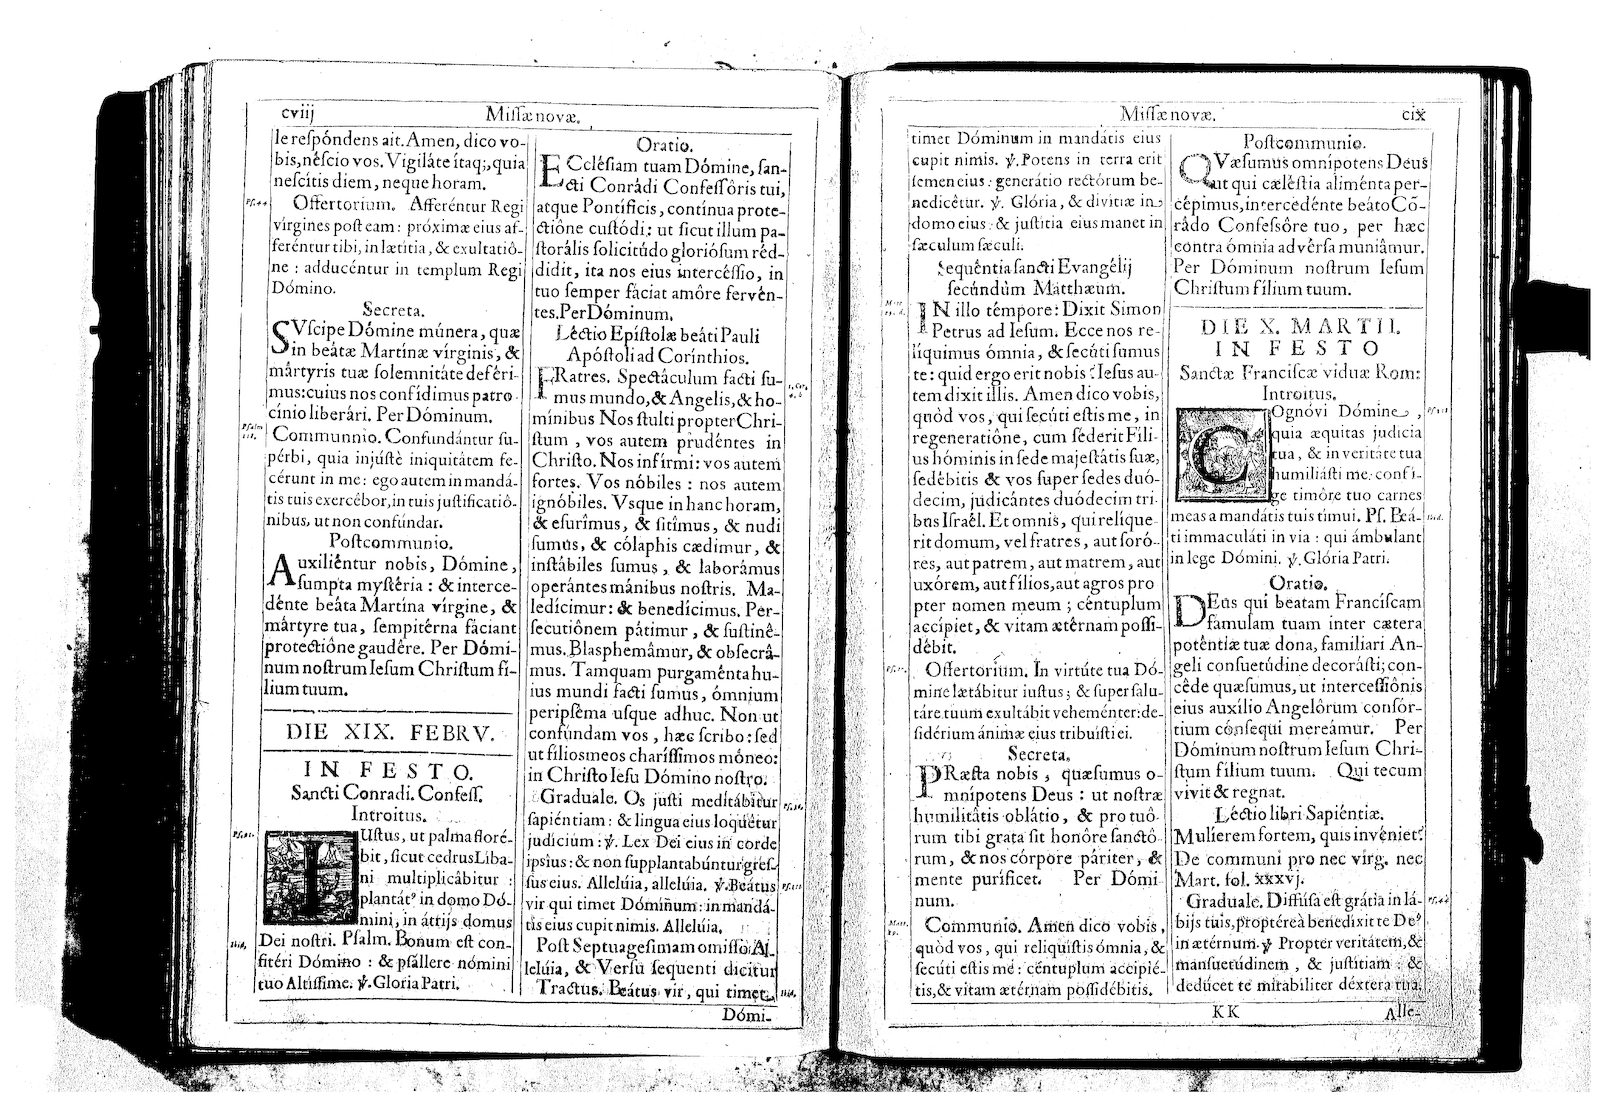 cviij
Missæ novæ.
le respóndens ait. Amen, dico vo-
bis, néscio vos. Vigiláte ítaq;, quia
nescítis diem, neque horam.
Ps. 44.
Offertorium. Afferéntur Regi
vírgines post eam: próximæ eius af-
feréntur tibi, in lætítia, & exultatió-
ne: adducéntur in templum Regi
Dómino.
Secreta.
SVscipe Dómine múnera, quæ
in beátæ Martínæ vírginis, &
mártyris tuæ solemnitáte deféri-
mus: cuius nos confídimus patro
cínio liberári. Per Dóminum.
Psalm
118.
Communnio. Confundántur su-
pérbi, quia injústè iniquitátem fe-
cérunt in me: ego autem in mandá-
tis tuis exercébor, in tuis justificatió-
nibus, ut non confúndar.
Postcommunio.
Auxiliéntur nobis, Dómine,
sumpta mystéria: & interce-
dénte beáta Martína vírgine, &
mártyre tua, sempitérna fáciant
protectióne gaudére. Per Dómi-
num nostrum Iesum Christum fí-
lium tuum.
DIE XIX. FEBRV.
IN FESTO.
Sancti Conradi. Confess.
Introitus.
Ps. 91.
IUstus, ut palma floré-
bit, sicut cedrus Líba-
ni multiplicábitur:
plantátꝰ in domo Dó-
mini, in átrijs domus
Ibid.
Dei nostri. Psalm. Bonum est con-
fitéri Dómino: & psállere nómini
tuo Altíssime. ℣. Gloria Patri.
Oratio.
ECclésiam tuam Dómine, san-
cti Conrádi Confessóris tui,
atque Pontíficis, contínua prote-
ctióne custódi: ut sicut illum pa-
storális solicitúdo gloriósum réd-
didit, ita nos eius intercéssio, in
tuo semper fáciat amóre fervén-
tes. Per Dóminum.
Léctio Epístolæ beáti Pauli
Apóstoli ad Corínthios.
1. Cor.
4. b
FRatres. Spectáculum facti su-
mus mundo, & Angelis, & ho-
mínibus Nos stulti propter Chri-
stum, vos autem prudéntes in
Christo. Nos infírmi: vos autem
fortes. Vos nóbiles: nos autem
ignóbiles. Vsque in hanc horam,
& esurímus, & sitímus, & nudi
sumus, & cólaphis cædimur, &
instábiles sumus, & laborámus
operántes mánibus nostris. Ma-
ledícimur: & benedícimus. Per-
secutiónem pátimur, & sustiné-
mus. Blasphemámur, & obsecrá-
mus. Tamquam purgaménta hu-
ius mundi facti sumus, ómnium
peripséma usque adhuc. Non ut
confúndam vos, hæc scribo: sed
ut fílios meos charíssimos móneo:
in Christo Iesu Dómino nostro.
Ps. 36.
Graduale. Os justi meditábitur
sapiéntiam: & lingua eius loquétur
judícium: ℣. Lex Dei eius in corde
ipsius: & non supplantabúntur gres-
Ps. 111
sus eius. Allelúia, allelúia. ℣. Beátus
vir qui timet Dóminum: in mandá-
tis eius cupit nimis. Allelúia.
Post Septuagesimam omisso Al
lelúia, & Versu sequenti dicitur
Ibid.
Tractus. Beátus vir, qui timet
Dómi-
Missæ novæ.
cix
timet Dóminum in mandátis eius
cupit nimis. ℣. Potens in terra erit
semen eius: generátio rectórum be-
nedicétur. ℣. Glória, & divítiæ in
domo eius: & justítia eius manet in
sæculum sæculi.
Sequéntia sancti Evangélij
secúndùm Matthæum.
IN illo témpore: Dixit Simon
Petrus ad Iesum. Ecce nos re-
líquimus ómnia, & secúti sumus
te: quid ergo erit nobis? Iesus au-
tem dixit illis. Amen dico vobis,
quòd vos, qui secúti estis me, in
regeneratióne, cum séderit Fíli-
us hóminis in sede majestátis suæ,
sedébitis & vos super sedes duó-
decim, judicántes duódecim tri-
bus Israël. Et omnis, qui relíque-
rit domum, vel fratres, aut soró-
res, aut patrem, aut matrem, aut
uxórem, aut fílios, aut agros pro
pter nomen meum; céntuplum
accípiet, & vitam ætérnam possi-
débit.
Offertorium. In virtúte tua Dó-
mine lætábitur iustus; & super salu-
táre tuum exultábit veheménter: de-
sidérium ánimæ eius tribuísti ei.
Secreta.
PRæsta nobis, quæsumus o-
mnípotens Deus: ut nostræ
humilitátis oblátio, & pro tuó-
rum tibi grata sit honóre sanctó-
rum, & nos córpore páriter, &
mente puríficet. Per Dómi
num.
Communio. Amen dico vobis,
quòd vos, qui reliquístis ómnia, &
secúti estis me: céntuplum accipié-
tis, & vitam ætérnam possidébitis.
Postcommunio.
QVæsumus omnípotens Deus
ut qui cæléstia aliménta per-
cépimus, intercedénte beáto Cō-
rádo Confessóre tuo, per hæc
contra ómnia advérsa muniámur.
Per Dóminum nostrum Iesum
Christum fílium tuum.
DIE X. MARTII.
IN FESTO
Sanctæ Franciscæ viduæ Rom:
Introitus.
COgnóvi Dómine,
quia æquitas judicia
tua, & in veritáte tua
humiliásti me: confí-
ge timóre tuo carnes
Ibid.
meas a mandátis tuis timui. Ps. Beá-
ti immaculáti in via: qui ámbulant
in lege Dómini. ℣. Glória Patri.
Oratio.
DEus qui beatam Francíscam
famulam tuam inter cætera
poténtiæ tuæ dona, familiari An-
geli consuetúdine decorásti; con-
céde quæsumus, ut intercessiónis
eius auxílio Angelórum consór-
tium cónsequi mereámur. Per
Dóminum nostrum Iesum Chri-
stum fílium tuum. Qui tecum
vivit & regnat.
Léctio libri Sapiéntiæ.
Mulíerem fortem, quis invéniet?
De communi pro nec virg. nec
Mart. fol. xxxvj.
Graduale. Diffúsa est grátia in lá-
bijs tuis, proptéreà benedíxit te Deꝰ
in ætérnum. ℣ Propter veritátem, &
mansuetúdinem, & justítiam: &
dedúcet te mirabíliter déxtera tua.
KK
Alle-